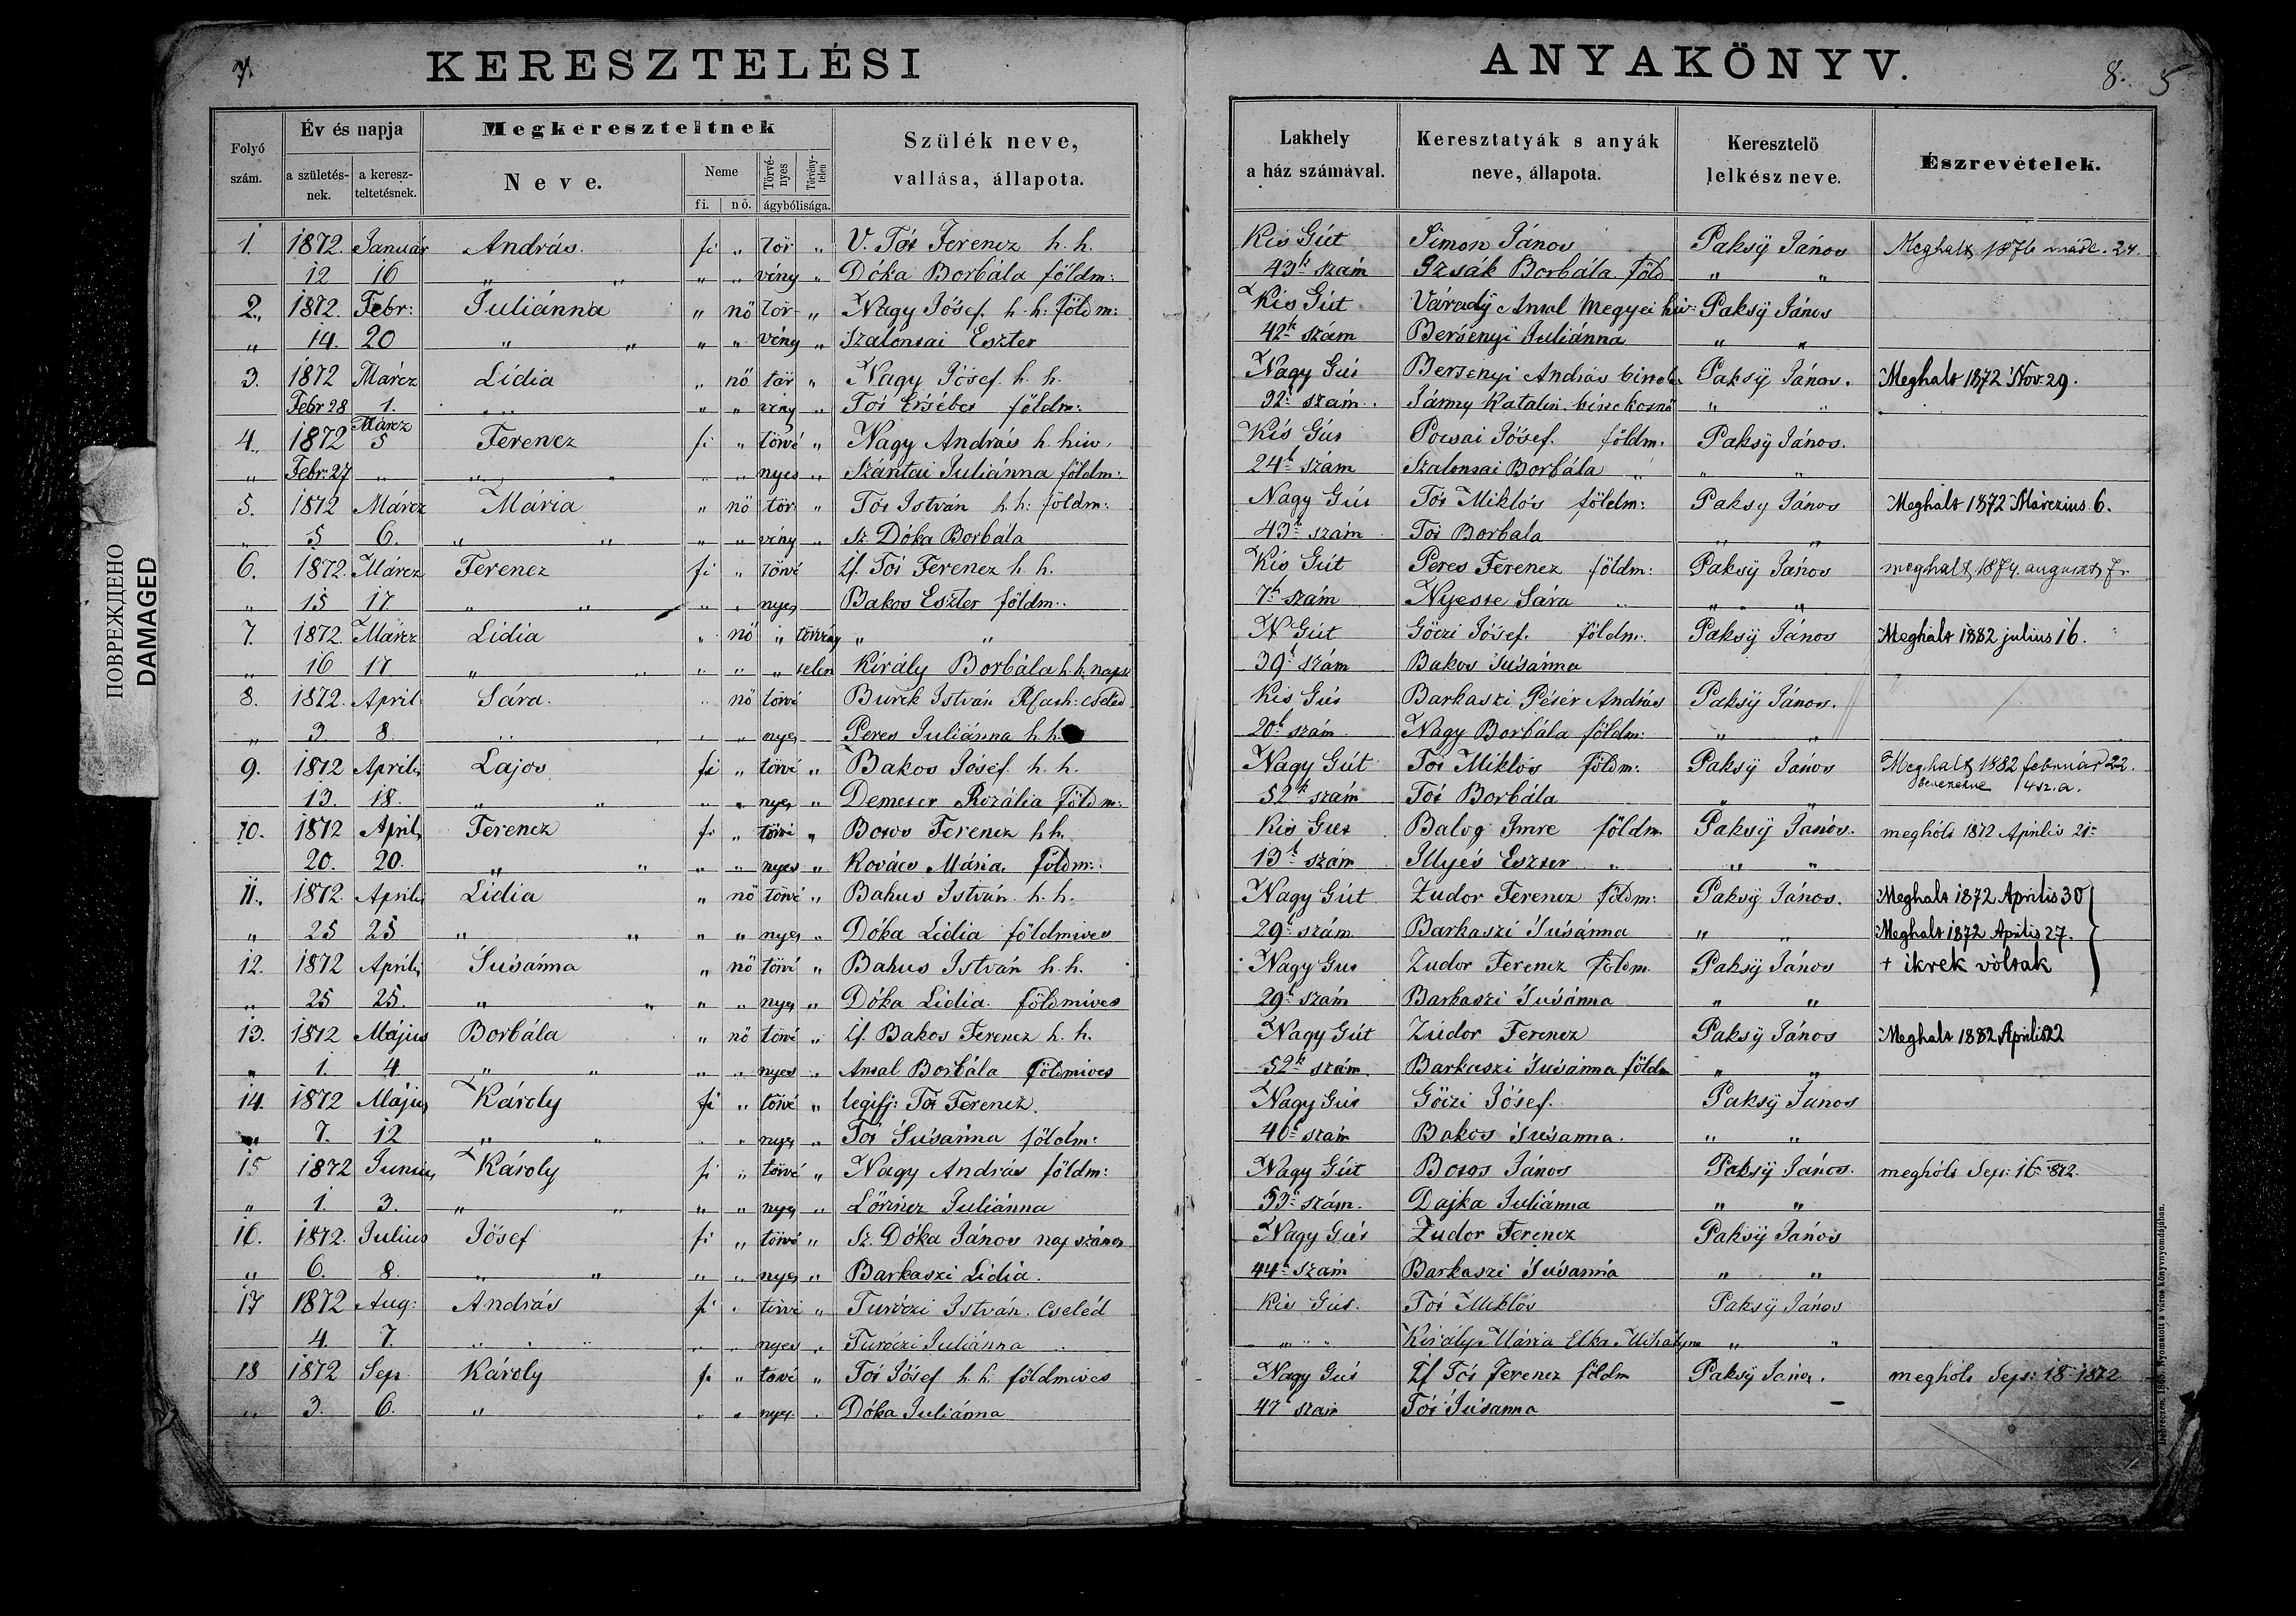 7.
KERESZTELÉSI
Folyó szám.
Év és napja
a születés-nek.
a keresz-teltetésnek.
Megkereszteltnek
Neve.
Neme
fi.
nő.
Törvé-nyes
Törvény-telen
ágybólisága.
Szülék neve,
vallása, állapota.
1. 1872. Január András. fi „ tör „ V. Tót Ferencz h. h.
12 16 „ „ „ „ vény „ Dóka Borbála földm:
2. 1872. Febr: Juliánna „ nő tör „ Nagy Jósef. h. h. földm:
„ 14. 20 „ „ „ „ vény „ Szalontai Eszter
3. 1872 Márcz Lídia „ nő tör „ Nagy Jósef. h. h.
Febr 28 1. „ „ „ „ vény „ Tót Ersébet földm:
4. 1872 Márcz 5 Ferencz fi „ törvé „ Nagy András h. hiv.
„ Febr. 27 „ „ „ „ „ nyes „ Szántai Juliánna földm:
5. 1872 Márcz Mária „ nő tör „ Tót István h. h: földm:
„ 5 6. „ „ „ „ vény „ Sz. Dóka Borbála
6. 1872. Márcz Ferencz fi „ törvé If. Tót Ferencz h. h.
„ 15 17 „ „ „ „ nyes Bakos Eszter földm:
7. 1872. Márcz Lidia „ nő „ törvény „ „
„ 16 17 „ „ „ „ „ telen Király Borbála h. h. naps
8. 1872. April: Sára. „ nő törvé Burek István R. Cath: cseléd
„ 3. 8. „ „ „ „ nyes Peres Juliánna h. h.
9. 1872 Aprilis Lajos fi „ törvé „ Bakos Jósef. h. h.
13. 18. „ „ „ „ nyes „ Demeter Rozália földm:
10. 1872 April, Ferencz fi „ törvé „ Boros Ferencz h h.
20. 20. „ „ „ „ nyes „ Kovács Mária, földm:
11. 1872. Aprilis Lidia „ nő törvé „ Bahus István h. h.
„ 25 25 „ „ „ „ nyes „ Dóka Lidia földmives
12. 1872 Aprilis Susánna „ nő törvé „ Bahus István h. h.
„ 25 25. „ „ „ „ nyes „ Dóka Lidia. földmives
13. 1872 Május Borbála „ nő törvé „ If. Bakos Ferencz h. h.
„ 1. 4 „ „ „ „ nyes „ Antal Borbála földmives
14. 1872 Május Károly fi „ törvé „ legifj: Tót Ferencz.
„ 7. 12 „ „ „ „ nyes „ Tót Susánna földm:
15 1872 Junius Károly fi „ törvé „ Nagy András földm:
„ 1. 3. „ „ „ „ nyes „ Lőrincz Juliánna
16. 1872. Julius Jósef fi „ törvé „ Sz. Dóka János nap számos
„ 6. 8. „ „ „ „ nyes „ Barkaszi Lidia.
17 1872 Aug: András fi „ törvé „ Turóczi István. Cseléd
4. 7. „ „ „ „ nyes „ Turóczi Juliánna „
18 1872 Sept Károly fi „ törvé „ Tót Jósef h. h. földmives
„ 3. 6. „ „ „ nyes „ Dóka Juliánna
ПОВРЕЖДЕНО
DAMAGED
ANYAKÖNYV.
8. 5
Lakhely
a ház számával.
Keresztatyák s anyák
neve, állapota.
Keresztelő
lelkész neve.
Észrevételek.
Kis Gút Simon János Paksÿ János Meghalt 1876 24.
43k szám Izsák Borbála. föld „ „
Kis Gút Váradÿ Antal Megyei hiv: Paksÿ János
42k szám Bersenyi Juliánna „ „
Nagy Gút Bersenyi András Paksÿ János. Meghalt 1872 Nov. 29.
32. szám. Jármy Katalin. „ „
Kis Gút Pocsai Jósef. földm. Paksÿ János.
24k szám Szalontai Borbála „ „ „
Nagy Gút Tót Miklós földm: Paksy János Meghalt 1872 Márczius 6.
43k szám Tót Borbala „ „
Kis Gút Peres Ferencz földm: Paksÿ János meghalt 1874. auguszt 7.
7k szám Nyeste Sára „ „ „
N Gút Göczi Jósef. földm. Paksÿ János Meghalt 1882 julius 16.
39k szám Bakos Susánna
Kis Gút Barkaszi Pétér András Paksÿ János.
20k szám Nagy Borbála földm: „ „
Nagy Gút Tót Miklós földm: Paksÿ János Meghalt 1882 február 22.
52k szám Tót Borbála „ „ 14 sz. a.
Kis Gut Balog Imre földm. Paksÿ János. meghólt 1872 Aprilis 21n
13k szám Illyés Eszter „ „ „
Nagy Gút Zudor Ferencz földm: Paksÿ János. Meghalt 1872 Aprilis 30
29k szám Barkaszi Susánna „ „ Meghalt 1872 Aprilis 27.
Nagy Gut Zudor Ferencz földm. Paksÿ János + ikrek voltak
29k szám Barkaszi Susánna „ „
Nagy Gút Zudor Ferencz Paksÿ János Meghalt 1882 Aprilis 22
52k szám. Barkaszi Susánna földm „ „
Nagy Gút Göczi Jósef. Paksÿ János
40k szám Bakos Susanna. „ „
Nagy Gút Boros János Paksÿ János. meghólt Sep: 16n 872.
53k szám. Dajka Juliánna „ „
Nagy Gút Zudor Ferencz Paksÿ János
44k szám Barkaszi Susánna „ „
Kis Gút. Tót Miklós Paksÿ János
„ „ „ Király Mária Elka Mihályne „ „
Nagy Gút If Tót Ferencz földm Paksÿ János. meghólt Sept: 18n 1872
47 szám Tót Susanna
Debreczen, 1865. Nyomatott a város könyvnyomdájában.